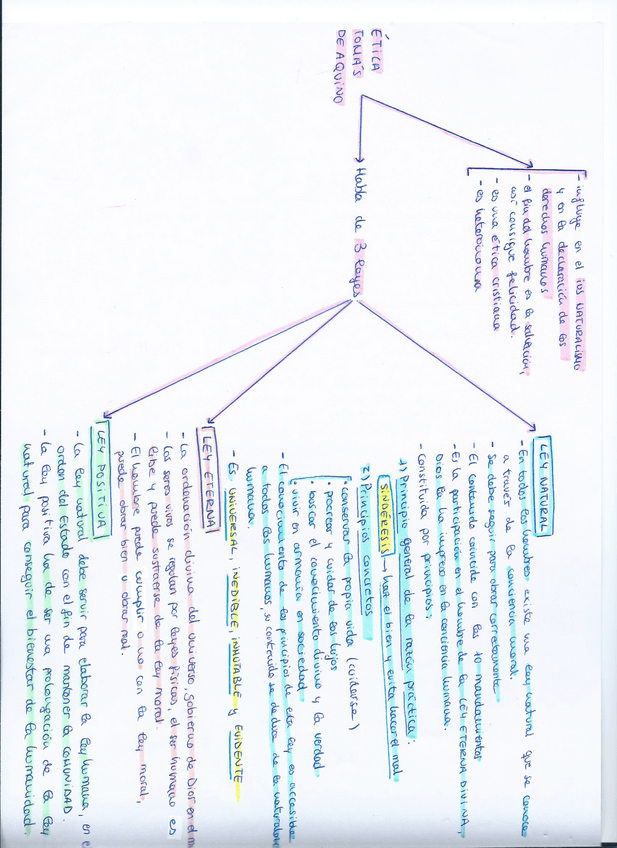 ÉTICA
TOMÁS
DE AQUINO
- influye en el IUS NATURALISMO
y en la declaración de los
derechos humanos
- el fin del hombre es la salvación,
así consigue felicidad.
- es una ética cristiana
- es heterónoma
Habla de 3 leyes
LEY NATURAL
- En todos los hombres existe una ley natural que se conoce
a través de la conciencia moral.
- Se debe seguir para obrar correctamente
- El contenido coincide con los 10 mandamientos
- Es la participación en el hombre de la LEY ETERNA DIVINA,
Dios la ha impreso en la conciencia humana.
- Constituida por principios:
1) Principio general de la razón práctica:
SINDÉRESIS → haz el bien y evita hacer el mal
2) Principios concretos
• conservar la propia vida (cuidarse)
• procrear y cuidar de los hijos
• buscar el conocimiento divino y la verdad.
• vivir en armonía en sociedad
- El conocimiento de los principios de esta ley es accesible
a todos los humanos, su contenido se deduce de la naturaleza
humana.
- Es UNIVERSAL, INEDIBLE, INMUTABLE y EVIDENTE
LEY ETERNA
- La ordenación divina del universo, gobierno de Dios en el m
- Los seres vivos se regulan por leyes físicas, el ser humano es
libre y puede sustraerse de la ley moral.
- El hombre puede cumplir o no con la ley moral,
puede obrar bien u obrar mal.
LEY POSITIVA
- La ley natural debe servir para elaborar la ley humana, en e
orden del Estado con el fin de mantener la COMUNIDAD.
- La ley positiva ha de ser una prolongación de la ley
natural para conseguir el bienestar de la humanidad.